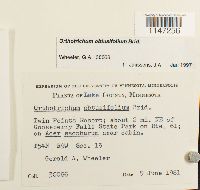 1147256
Orthotrichum obtusifolium Brid.
Wheeler, G.A. 30066
Jan. 1997
Plants of Lake County, Minnesota
Orthotrichum obtusifolium Brid.
Twin Points Resort; about 2 mi. NE of
Gooseberry Falls State Park on Hwy. 61;
on Acer saccharum near cabin.
T54N R9W Sec. 13
Gerald A. Wheeler
No. 30066
Date 5 June 1981